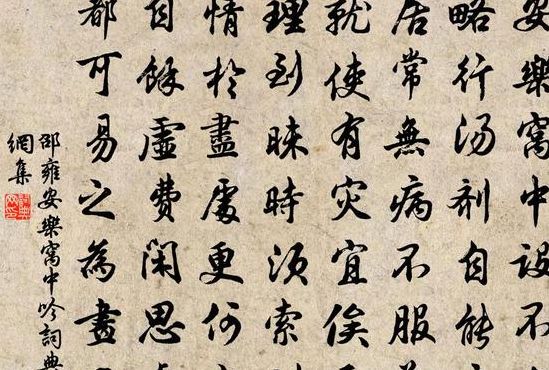 安樂窩中設不
略行汤剤自能
居常無病不服
就使有灾宜俟
理到昧時須索
情於盡處更何
自餘虛費閑思
都可易之為盡
邵雍安樂窩中吟詞典
網集